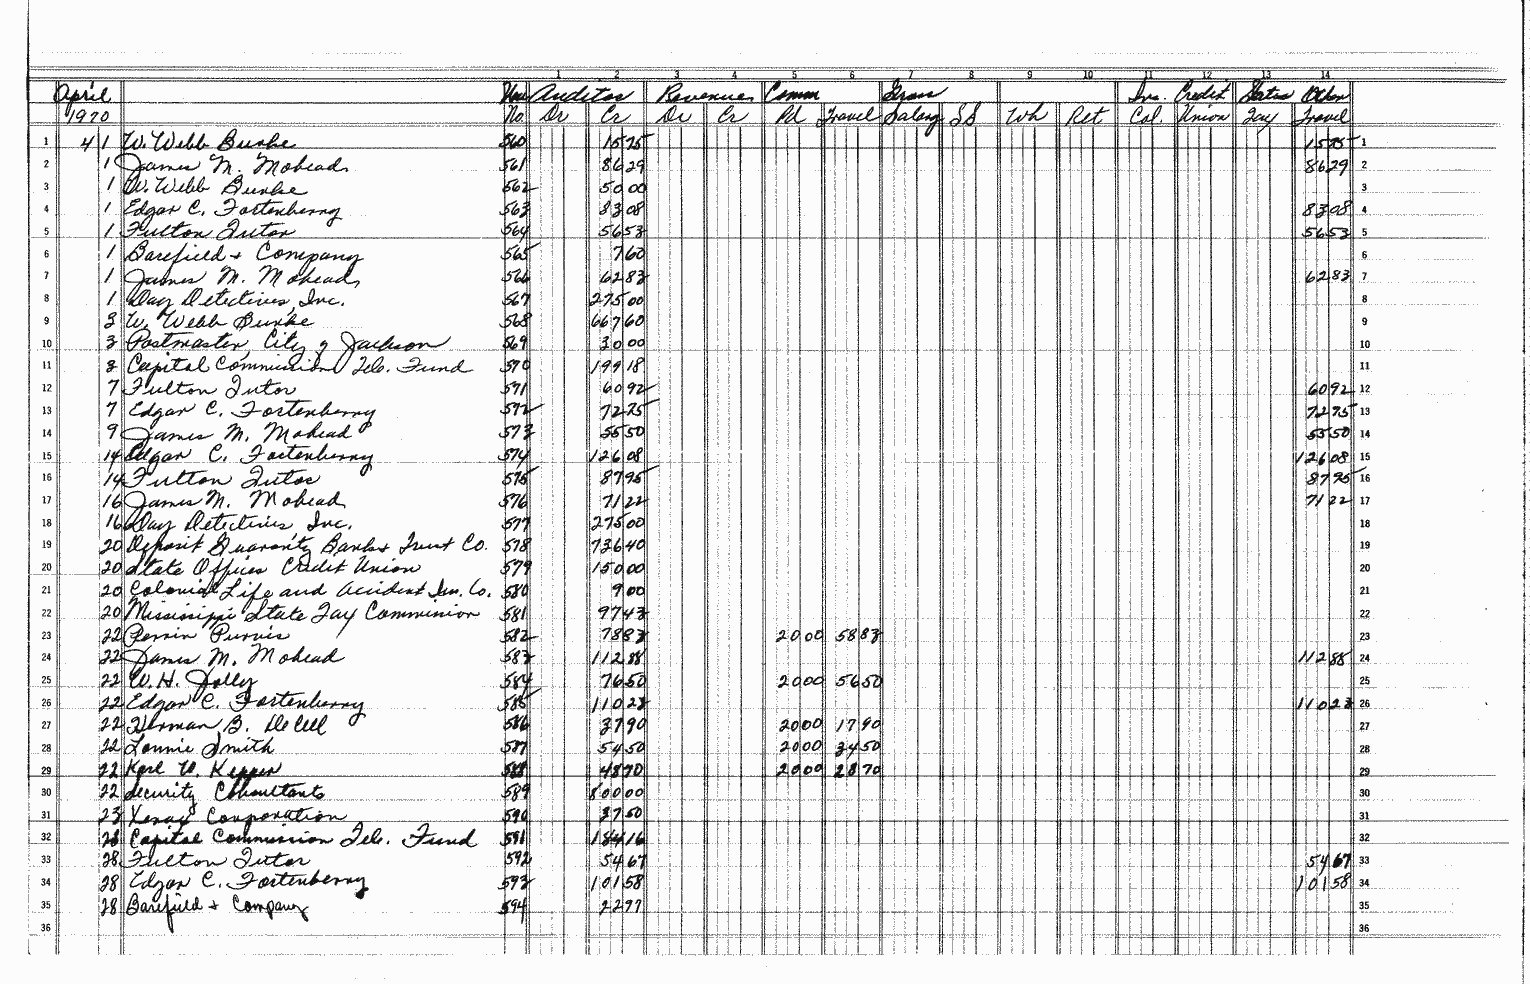 1 2 3 4 5 6 7 8 9 10 11 12 13 14
April Auditor Revenues Comm Gross Ins. Credit State Other
1970 No. Dr Cr Dr Cr Pd Travel Salary SS Wh Ret Col. Union Tax Travel
1 4 1 W. Webb Burke 560 1575 1575 1
2 1 James M. Mohead 561 8629 8629 2
3 1 W. Webb Burke 562 5000 3
4 1 Edgar C. Fortenberry 563 8308 8308 4
5 1 Fulton Tutor 564 5653 5653 5
6 1 Barefield & Company 565 760 6
7 1 James M. Mohead 566 6283 6283 7
8 1 Day Detectives, Inc. 567 27500 8
9 3 W. Webb Burke 568 66760 9
10 3 Postmaster, City of Jackson 569 3000 10
11 3 Capital Commission Tele. Fund 570 19918 11
12 7 Fulton Tutor 571 6092 6092 12
13 7 Edgar C. Fortenberry 572 7275 7275 13
14 9 James M. Mohead 573 5550 5550 14
15 14 Edgar C. Fortenberry 574 12608 12608 15
16 14 Fulton Tutor 575 8795 8795 16
17 16 James M. Mohead 576 7122 7122 17
18 16 Day Detectives Inc. 577 27500 18
19 20 Deposit Guaranty Bank & Trust Co. 578 73640 19
20 20 State Offices Credit Union 579 15000 20
21 20 Colonial Life and Accident Ins. Co. 580 900 21
22 20 Mississippi State Tax Commission 581 9743 22
23 22 Perrin Purvis 582 7883 2000 5883 23
24 22 James M. Mohead 583 11288 11288 24
25 22 W.H. Jolly 584 7650 2000 5650 25
26 22 Edgar C. Fortenberry 585 11023 11023 26
27 22 Herman B. DeCell 586 3790 2000 1790 27
28 22 Lonnie Smith 587 5450 2000 3450 28
29 22 Karl W. 588 4870 2000 2870 29
30 22 Security Consultants 589 80000 30
31 23 Xerox Corporation 590 3750 31
32 28 Capital Commission Tele. Fund 591 18416 32
33 28 Fulton Tutor 592 5467 5467 33
34 28 Edgar C. Fortenberry 593 10158 10158 34
35 28 Barefield & Company 594 2297 35
36 36